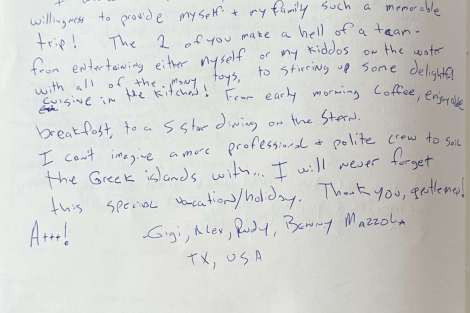 willingness to provide myself + my family such a memorable
trip! The 2 of you make a hell of a team-
from entertaining either myself or my kiddos on the water
with all of the many toys, to stirring up some delightful
cuisine in the kitchen! From early morning coffee, enjoyable
breakfast, to a 5 star dining on the stern.
I can't imagine a more professional + polite crew to sail
the Greek islands with... I will never forget
this special vacation/holiday. Thank you, gentlemen!
A+++!
-Gigi, Alex, Rudy, Benny Mazzola
TX, USA